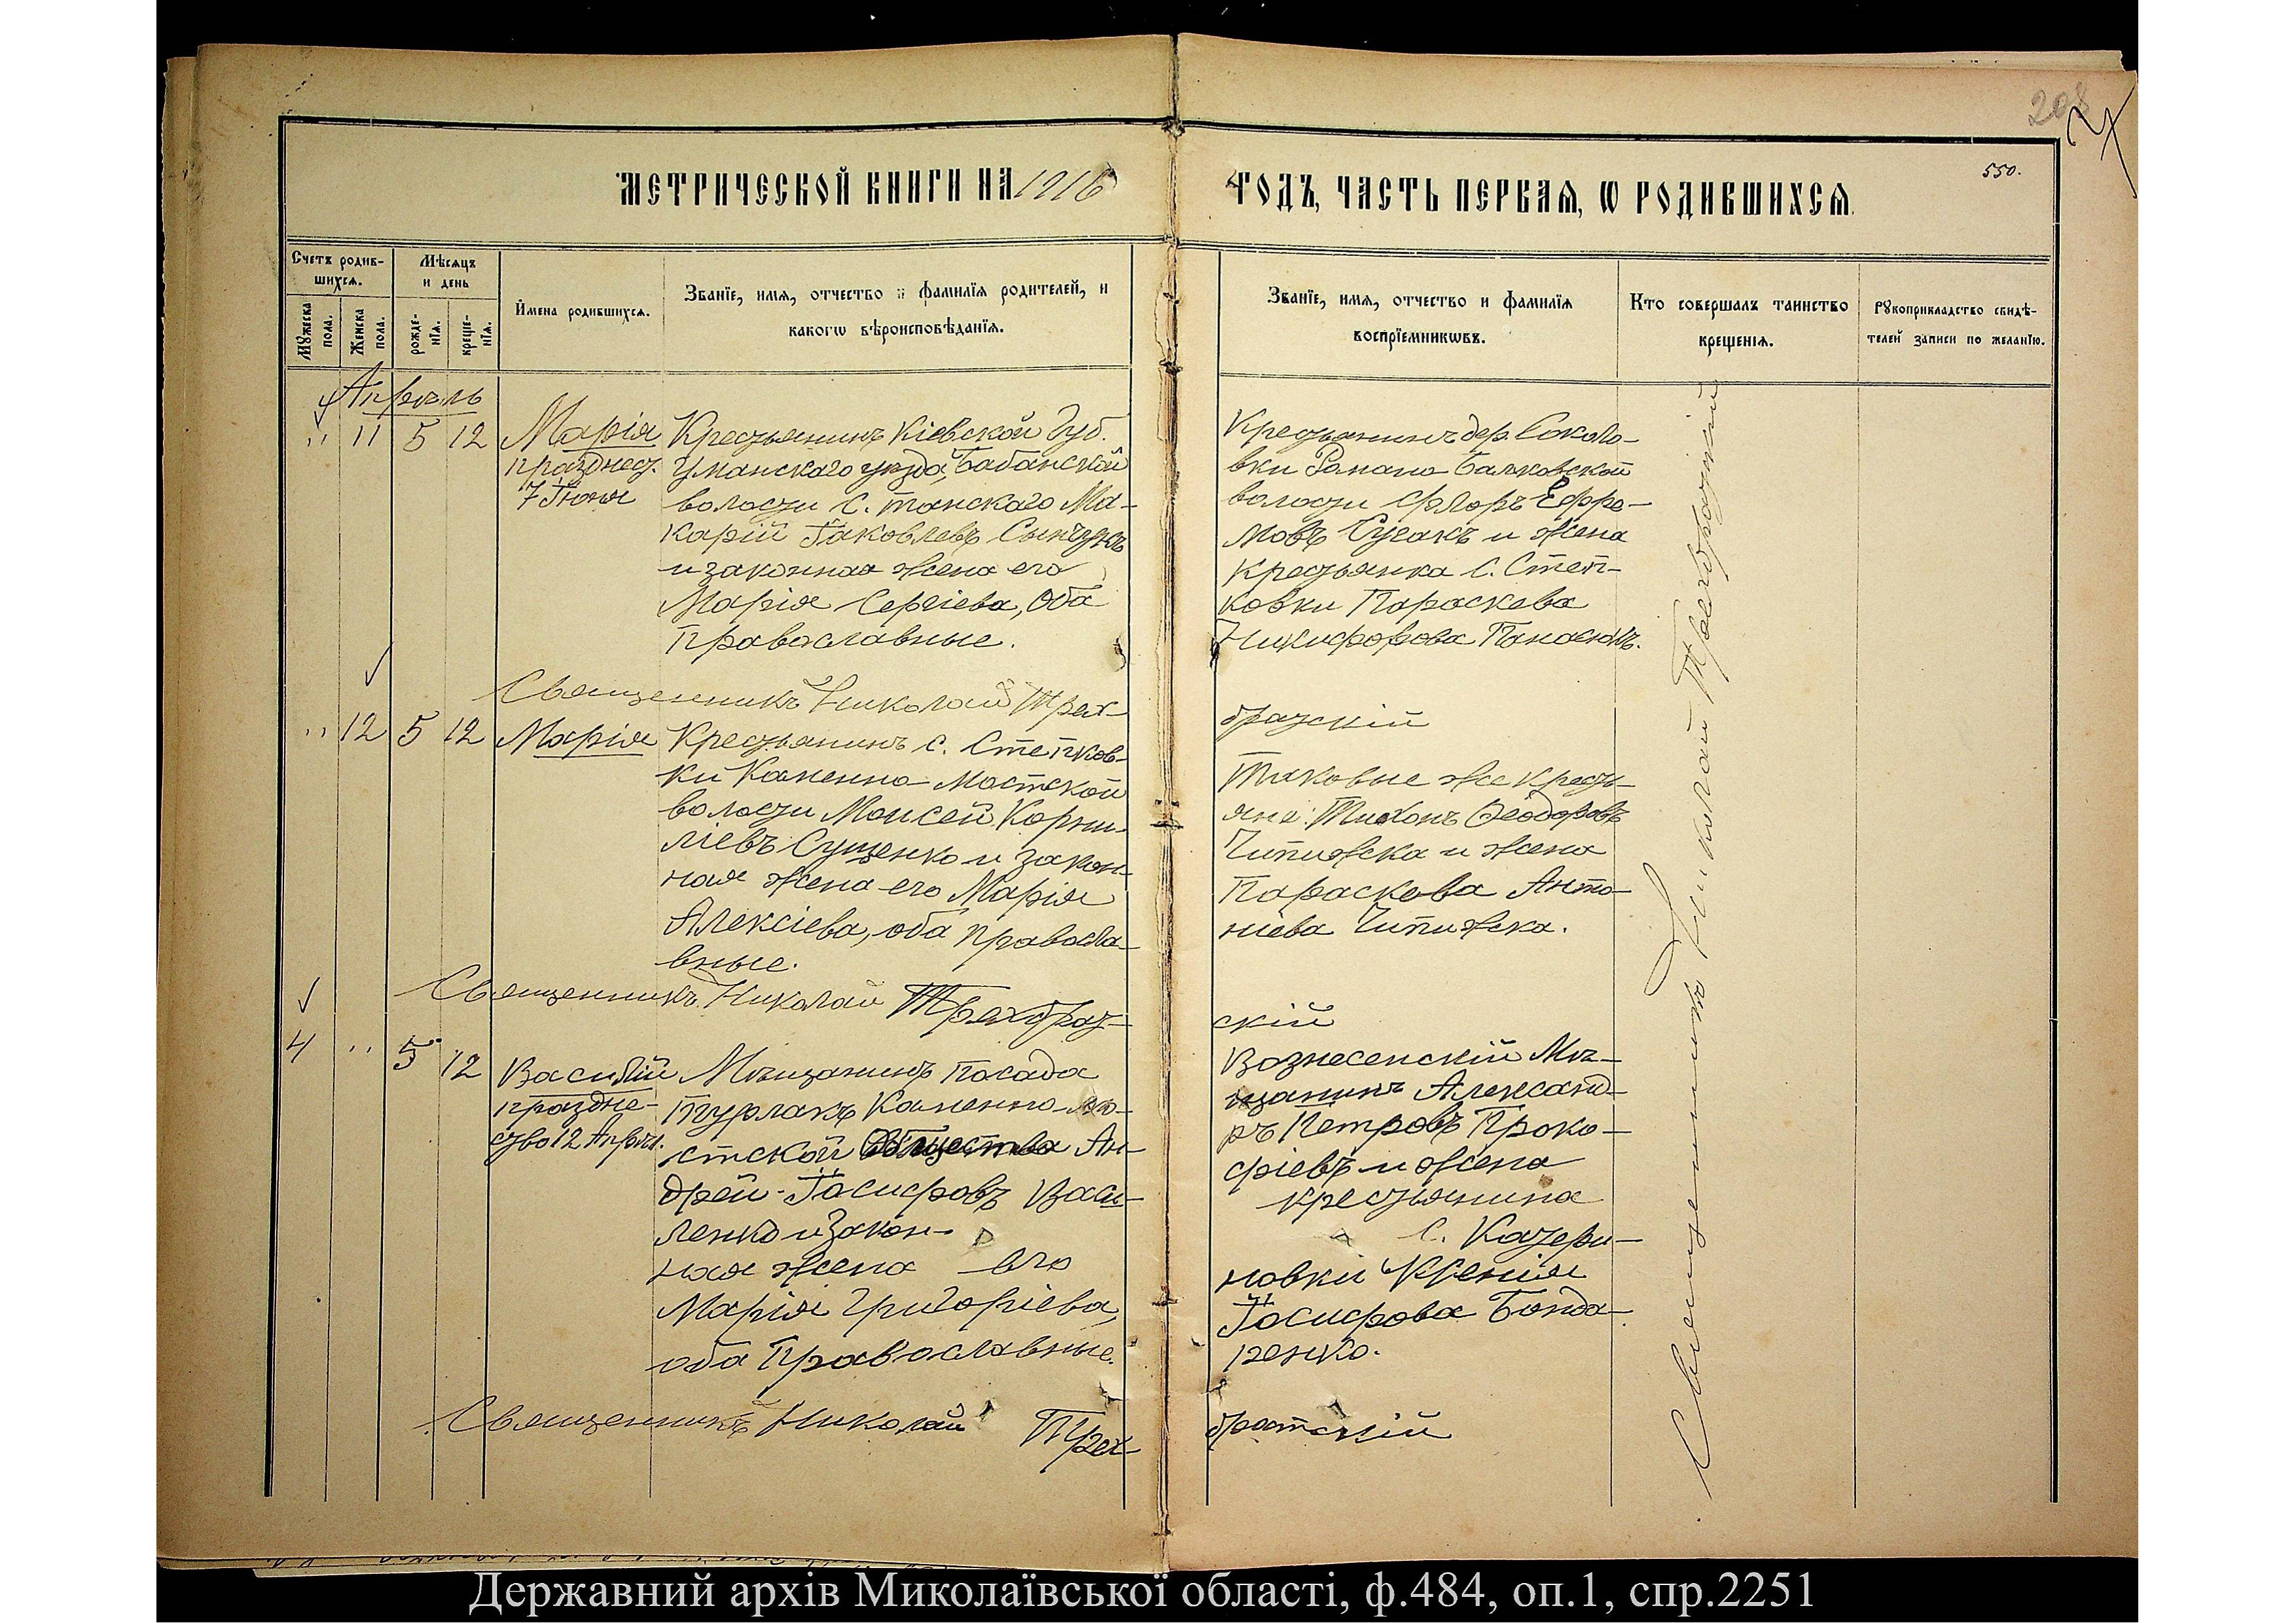 208
550.
МЕТРИЧЕСКОЙ КНИГИ НА 1916 ГОДЪ, ЧАСТЬ ПЕРВАЯ, Ѡ РОДИВШИХСЯ.
Счетъ родив-
шихся.
Мѣсяцъ
и день
Мужеска
пола.
Женска
пола.
рожде-
нїя.
креще-
нїя.
Имена родившихся.
Званїе, имя, отчество и фамилїя родителей, и
какогѡ вѣроисповѣданїя.
Званїе, имя, отчество и фамилїя
воспрїемникѡвъ.
Кто совершалъ таинство
крещенїя.
Рꙋкоприкладство свидѣ-
телей записи по желанїю.
Апрѣль
" 11 5 12
Марія
празднест.
7 Іюня
Крестьянинъ Кіевской Губ.
Уманскаго уѣзда, Бабанской
волости С. Танскаго Ма-
карій Іаковлевъ
и законная жена его
Марія Сергіева, Оба
Православные.
Крестьянинъ дер. Соколо-
вки Романо-Балковской
волости Флоръ Ефре-
мовъ и жена
крестьянка С. Степ-
ковки Параскева
Никифорова Панасюкъ.
Священникъ Николай Трех-
братскій
" 12 5 12
Марія
Крестьянинъ с. Степков-
ки Каменно-Мостской
волости Моисей Корни-
ліевъ Сущенко и закон-
ная жена его Марія
Алексіева, оба правосла-
вные.
Таковые же кресть-
яне: Тихонъ Ѳеодоровъ
Чипижска и жена
Параскева Анто-
ніева Чипижска.
Священникъ Николай Трехбрат-
скій
4 " 5 12
Василій
праздне-
ство 12 Апрѣл.
Мѣщанинъ посада
Каменно-мо-
стской Общества Ан-
дрей Іосифовъ Васи-
ленко и Закон-
ная жена его
Марія Григоріева,
оба Православные.
Вознесенскій Мѣ-
щанинъ Александ-
ръ Петровъ Проко-
фіевъ и жена
крестьянина
с. Катери-
новки Ксенія
Іосифова Бонда-
ренко.
Священникъ Николай Трех-
братскій
Священникъ Николай Трехбратскій
Державний архів Миколаївської області, ф.484, оп.1, спр.2251